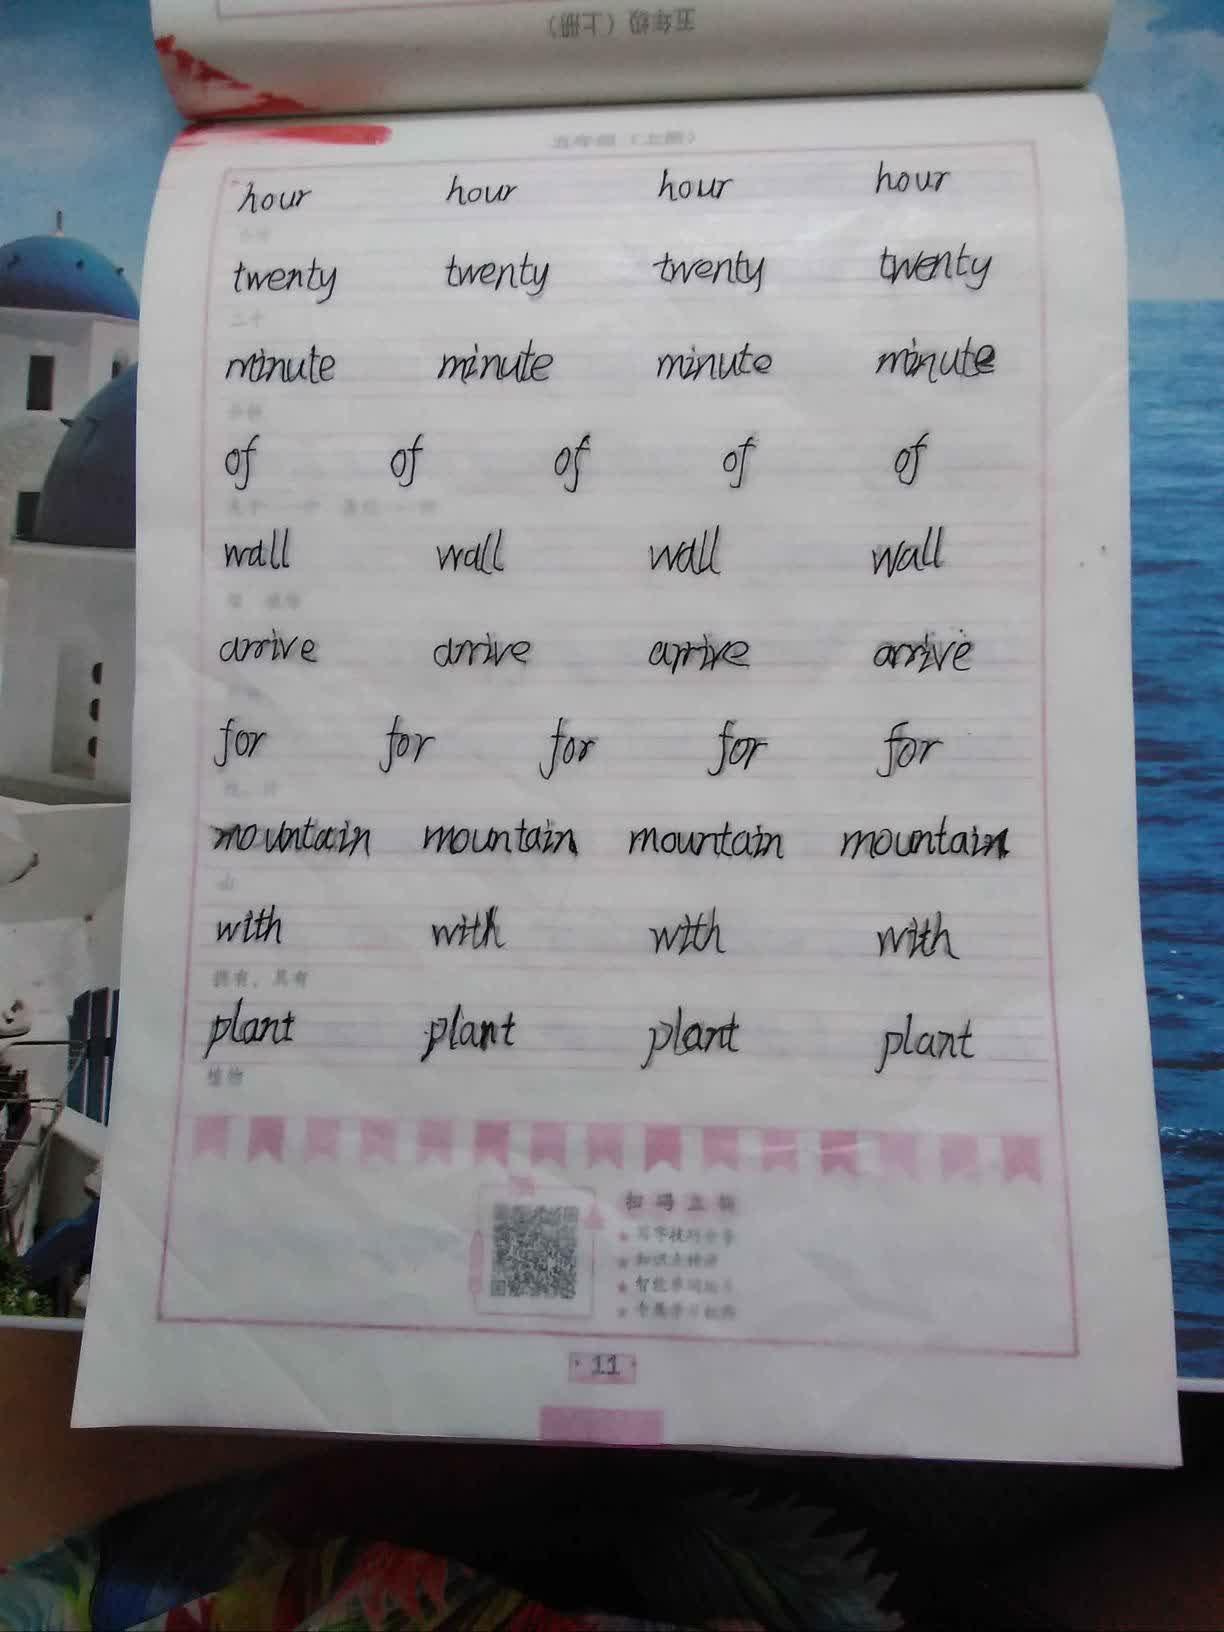 五年级（上册）
五年级（上册）
hour hour hour hour
twenty twenty twenty twenty
二十
minute minute minute minute
分钟
of of of of of
wall wall wall wall
arrive arrive arrive arrive
for for for for for
mountain mountain mountain mountain
山
with with with with
拥有，具有
plant plant plant plant
植物
扫码上课
写字技巧分享
知识点精讲
11